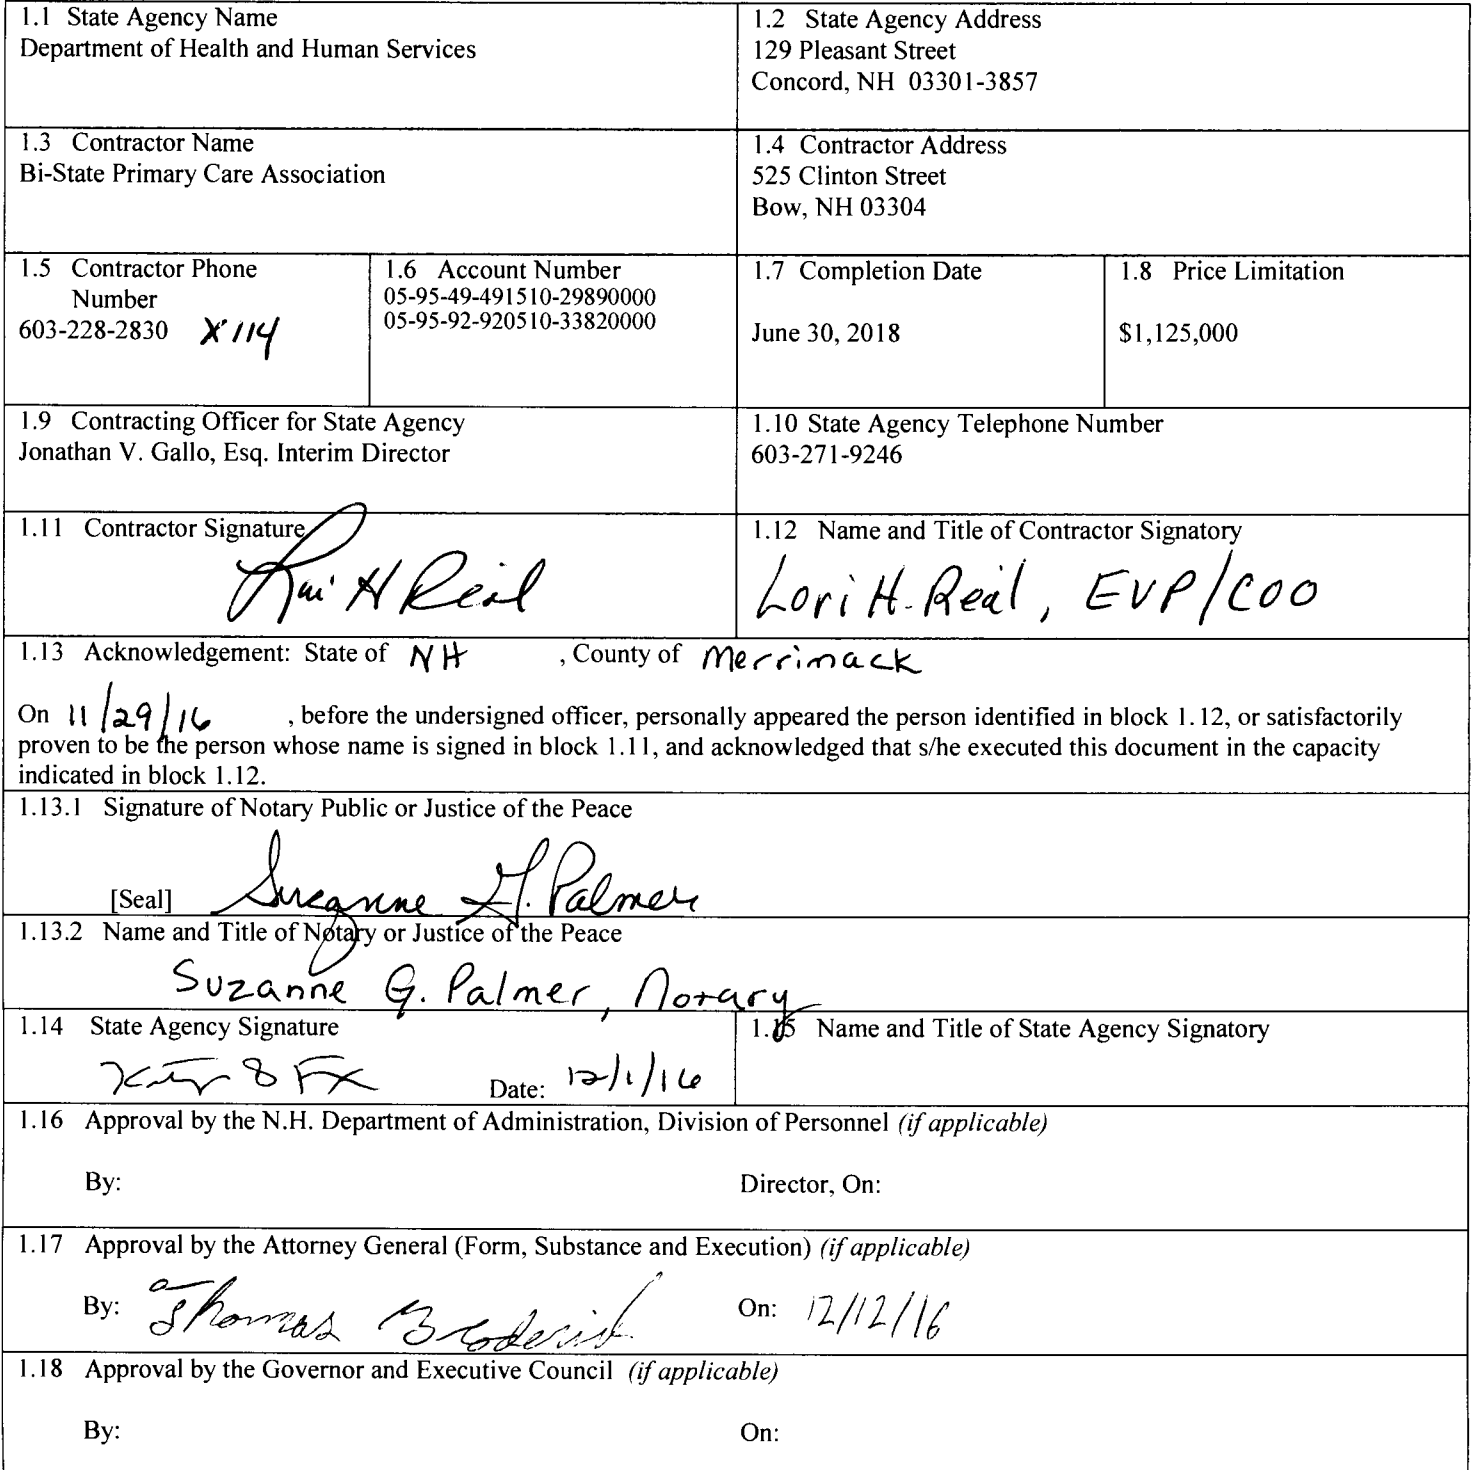 1.1 State Agency Name
Department of Health and Human Services
1.2 State Agency Address
129 Pleasant Street
Concord, NH 03301-3857
1.3 Contractor Name
Bi-State Primary Care Association
1.4 Contractor Address
525 Clinton Street
Bow, NH 03304
1.5 Contractor Phone
Number
603-228-2830 X 114
1.6 Account Number
05-95-49-491510-29890000
05-95-92-920510-33820000
1.7 Completion Date
June 30, 2018
1.8 Price Limitation
$1,125,000
1.9 Contracting Officer for State Agency
Jonathan V. Gallo, Esq. Interim Director
1.10 State Agency Telephone Number
603-271-9246
1.11 Contractor Signature
Lori H Real
1.12 Name and Title of Contractor Signatory
Lori H. Real, EVP/COO
1.13 Acknowledgement: State of NH , County of Merrimack
On 11/29/16 , before the undersigned officer, personally appeared the person identified in block 1.12, or satisfactorily
proven to be the person whose name is signed in block 1.11, and acknowledged that s/he executed this document in the capacity
indicated in block 1.12.
1.13.1 Signature of Notary Public or Justice of the Peace
[Seal] Suzanne G. Palmer
1.13.2 Name and Title of Notary or Justice of the Peace
Suzanne G. Palmer, Notary
1.14 State Agency Signature
Date: 12/1/16
1.15 Name and Title of State Agency Signatory
1.16 Approval by the N.H. Department of Administration, Division of Personnel (if applicable)
By:
Director, On:
1.17 Approval by the Attorney General (Form, Substance and Execution) (if applicable)
By: Thomas Broderick
On: 12/12/16
1.18 Approval by the Governor and Executive Council (if applicable)
By:
On: